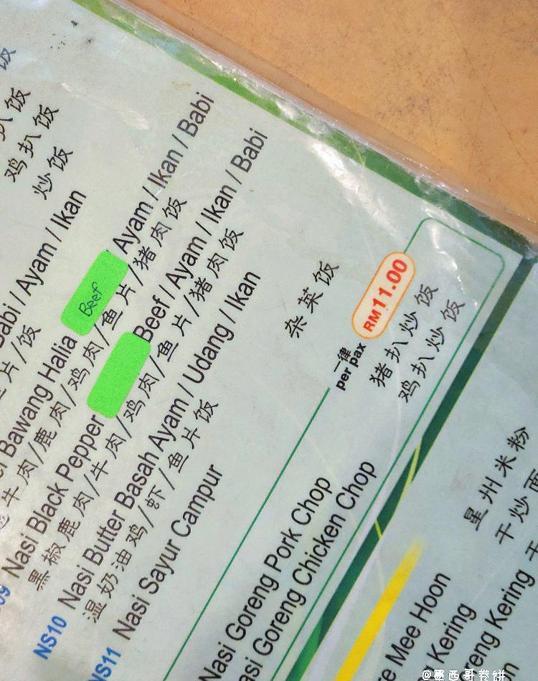 饭
扒饭
鸡扒饭
炒饭
Babi / Ayam / Ikan
片/饭
Bawang Halia Beef Ayam / Ikan / Babi
牛肉/鹿肉/鸡肉/鱼片/猪肉饭
Nasi Black Pepper Beef / Ayam / Ikan / Babi
黑椒鹿肉/牛肉/鸡肉/鱼片/猪肉饭
NS10 Nasi Butter Basah Ayam / Udang / Ikan
湿奶油鸡/虾/鱼片饭
NS11 Nasi Sayur Campur
杂英饭
一律
per pax RM11.00
Nasi Goreng Pork Chop
猪扒炒饭
Nasi Goreng Chicken Chop
鸡扒炒饭
Mee Hoon
星州米粉
Kering
干炒面
Goreng Kering
@墨西哥卷饼